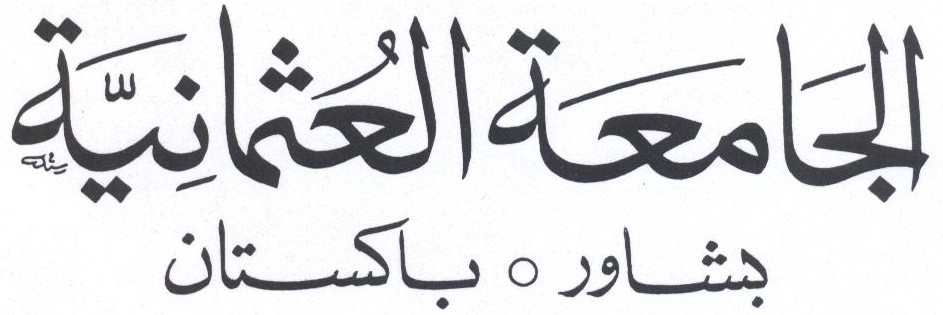 الجَامعَة العُثمانِيَّة
بشاور ○ باكستان